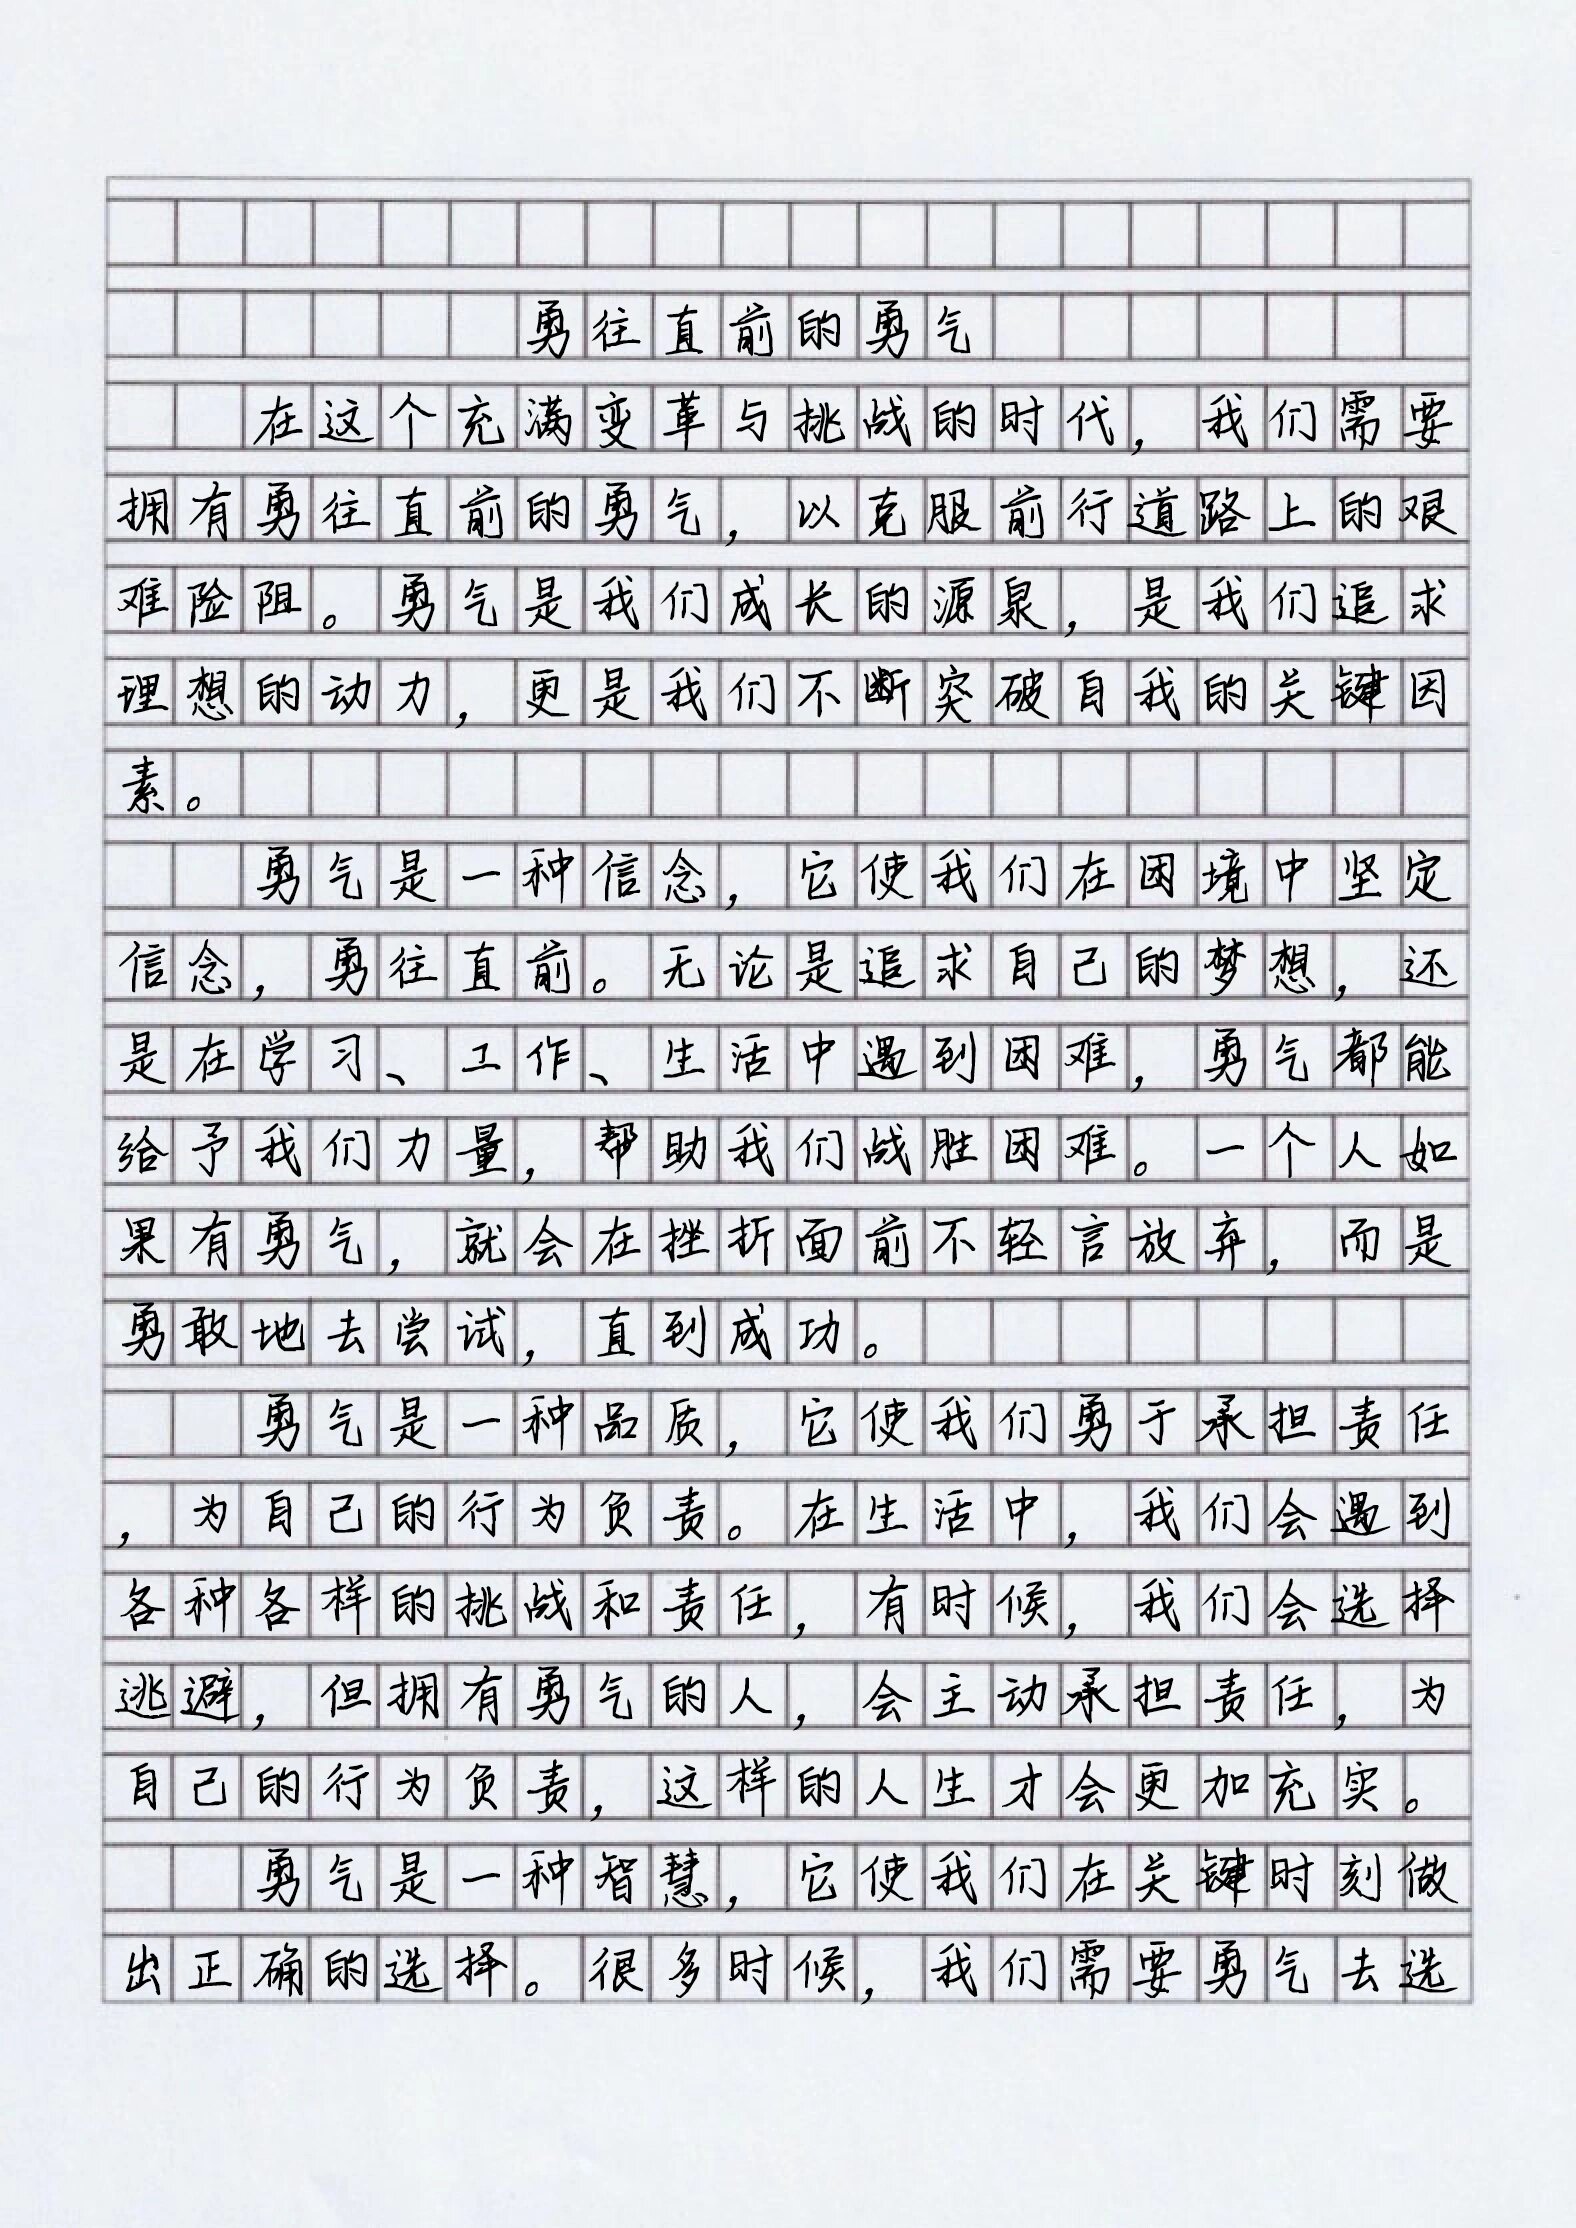 勇往直前的勇气
在这个充满变革与挑战的时代，我们需要
拥有勇往直前的勇气，以克服前行道路上的艰
难险阻。勇气是我们成长的源泉，是我们追求
理想的动力，更是我们不断突破自我的关键因
素。
勇气是一种信念，它使我们在困境中坚定
信念，勇往直前。无论是追求自己的梦想，还
是在学习、工作、生活中遇到困难，勇气都能
给予我们力量，帮助我们战胜困难。一个人如
果有勇气，就会在挫折面前不轻言放弃，而是
勇敢地去尝试，直到成功。
勇气是一种品质，它使我们勇于承担责任
，为自己的行为负责。在生活中，我们会遇到
各种各样的挑战和责任，有时候，我们会选择
逃避，但拥有勇气的人，会主动承担责任，为
自己的行为负责，这样的人生才会更加充实。
勇气是一种智慧，它使我们在关键时刻做
出正确的选择。很多时候，我们需要勇气去选